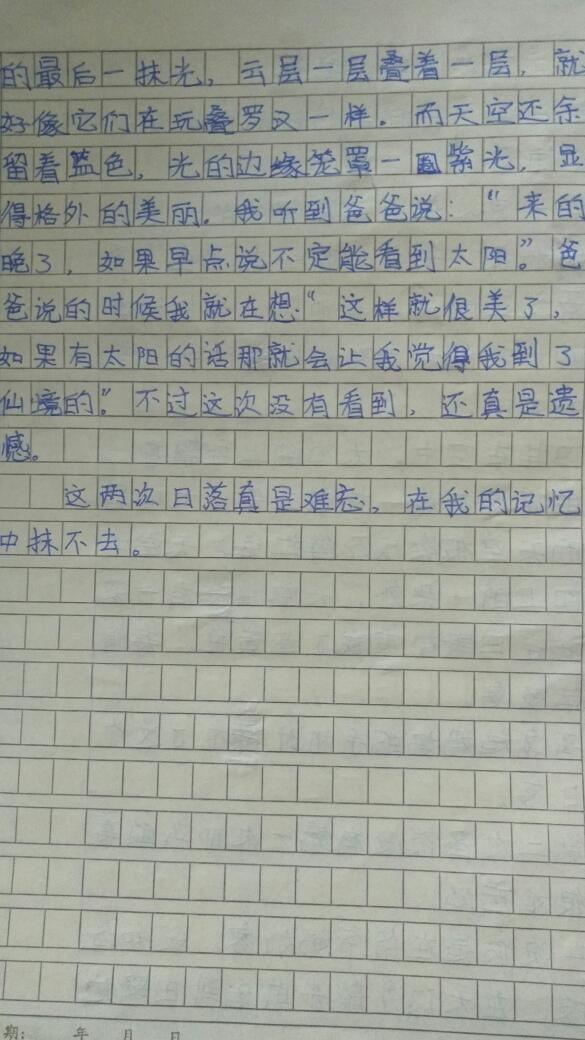 的最后一抹光，云层一层叠着一层，就
好像它们在玩叠罗汉一样。而天空还余
留着蓝色，光的边缘笼罩一圆紫光，显
得格外的美丽。我听到爸爸说：“来的
晚了，如果早点说不定能看到太阳。”爸
爸说的时候我就在想“这样就很美了，
如果有太阳的话那就会让我觉得我到了
仙境的。”不过这次没有看到，还真是遗
憾。
这两次日落真是难忘，在我的记忆
中抹不去。
期：　年　月　日